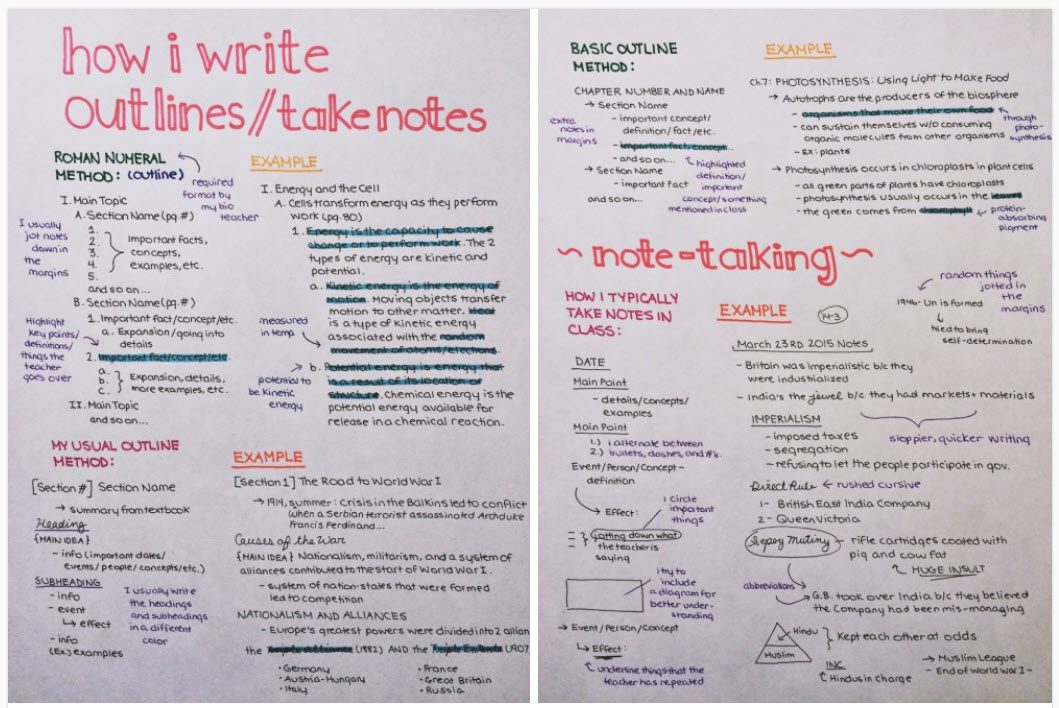 how i write
outlines//take notes
ROMAN NUMERAL
METHOD: (outline)
required
format by
my bio
teacher
I. Main Topic
A. Section Name (pg.#)
1.
2.
3.
4.
5.
Important facts,
concepts,
examples, etc.
and so on...
I usually
jot notes
down in
the
margins
B. Section Name (pg.#)
1. Important fact/concept/etc.
a. Expansion/going into
details
2. Important fact/concept/etc
a.
b.
c.
Expansion, details,
more examples, etc.
II. Main Topic
and so on...
Highlight
key points/
definitions/
things the
teacher
goes over
EXAMPLE
I. Energy and the Cell
A. Cells transform energy as they perform
work (pg. 80)
1. Energy is the capacity to cause
change or to perform work. The 2
types of energy are kinetic and
potential.
a. Kinetic energy is the energy of
motion. Moving objects transfer
motion to other matter. Heat
is a type of kinetic energy
associated with the random
movement of atoms/electrons.
b. Potential energy is energy that
is a result of its location or
structure. Chemical energy is the
potential energy available for
release in a chemical reaction.
measured
in temp
potential to
be kinetic
energy
MY USUAL OUTLINE
METHOD:
[Section #] Section Name
→ summary from textbook
Heading
{MAIN IDEA}
- info (important dates/
events/people/concepts/etc.)
SUBHEADING
- info
- event
↳ effect
- info
(Ex) examples
I usually write
the headings
and subheadings
in a different
color
EXAMPLE
[Section 1] The Road to World War I
→ 1914, summer: crisis in the Balkins led to conflict
when a Serbian terrorist assassinated Archduke
Francis Ferdinand...
Causes of the War
{MAIN IDEA} Nationalism, militarism, and a system of
alliances contributed to the start of World War I.
- system of nation-states that were formed
led to competition
NATIONALISM AND ALLIANCES
- Europe's greatest powers were divided into 2 allian
the Triple Alliance (1882) AND the Triple Entente (1907
• Germany
• Austria-Hungary
• Italy
• France
• Great Britain
• Russia
BASIC OUTLINE
METHOD:
CHAPTER NUMBER AND NAME
→ Section Name
- important concept/
definition/fact/etc.
- important fact, concept...
- and so on...
→ Section Name
- important fact
and so on...
extra
notes in
margins
highlighted
definition/
important
concept/something
mentioned in class
EXAMPLE
Ch 7: PHOTOSYNTHESIS: Using Light to Make Food
→ Autotrophs are the producers of the biosphere
- organisms that make their own food
- can sustain themselves w/o consuming
organic molecules from other organisms
- Ex: plants
through
photo-
synthesis
→ Photosynthesis occurs in chloroplasts in plant cells
- all green parts of plants have chloroplasts
- photosynthesis usually occurs in the leaves
- the green comes from chlorophyll
protein-
absorbing
pigment
~ note-taking ~
HOW I TYPICALLY
TAKE NOTES IN
CLASS:
DATE
Main Point
- details/concepts/
examples
Main Point
1.) i alternate between
2.) bullets, dashes, and #'s.
Event/Person/Concept -
definition
→ Effect:
i circle
important
things
Jotting down what
the teacher is
saying
i try to
include
a diagram for
better under-
standing
→ Event/Person/Concept
↳ Effect:
underline things that the
teacher has repeated
EXAMPLE
14-3
random things
jotted in
the
margins
1946- Un is formed
tried to bring
self-determination
March 23RD 2015 Notes
- Britain was imperialistic b/c they
were industrialized
- India's the jewel b/c they had markets + materials
IMPERIALISM
- imposed taxes
- segregation
- refusing to let the people participate in gov.
sloppier, quicker writing
Direct Rule
rushed cursive
1- British East India Company
2- Queen Victoria
Sepoy Mutiny - rifle cartridges coated with
pig and cow fat
HUGE INSULT
abbreviations
G.B. took over India b/c they believed
the Company had been mis-managing
Hindu
Muslim
Kept each other at odds
INC
Hindus in charge
→ Muslim League
- End of World War I -